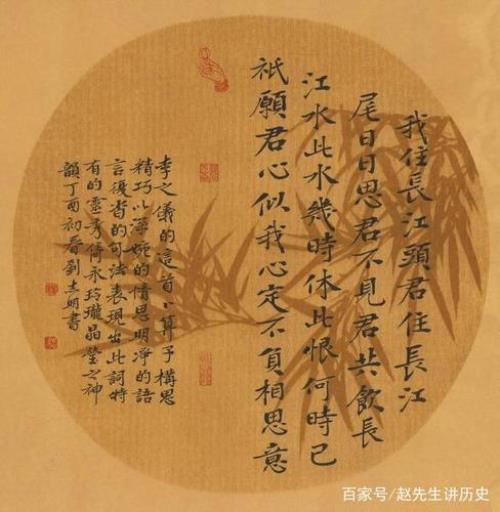 我住長江頭君住長江
尾日日思君不見君共飲長
江水此水幾時休此恨何時已
祇願君心似我心定不負相思意
李之儀的這首卜算子構思
精巧以深婉的情思明淨的語
言復沓的句法表現出此詞特
有的靈秀永玲瓏晶瑩之神
韻丁酉初春劉書
百家号/赵先生讲历史